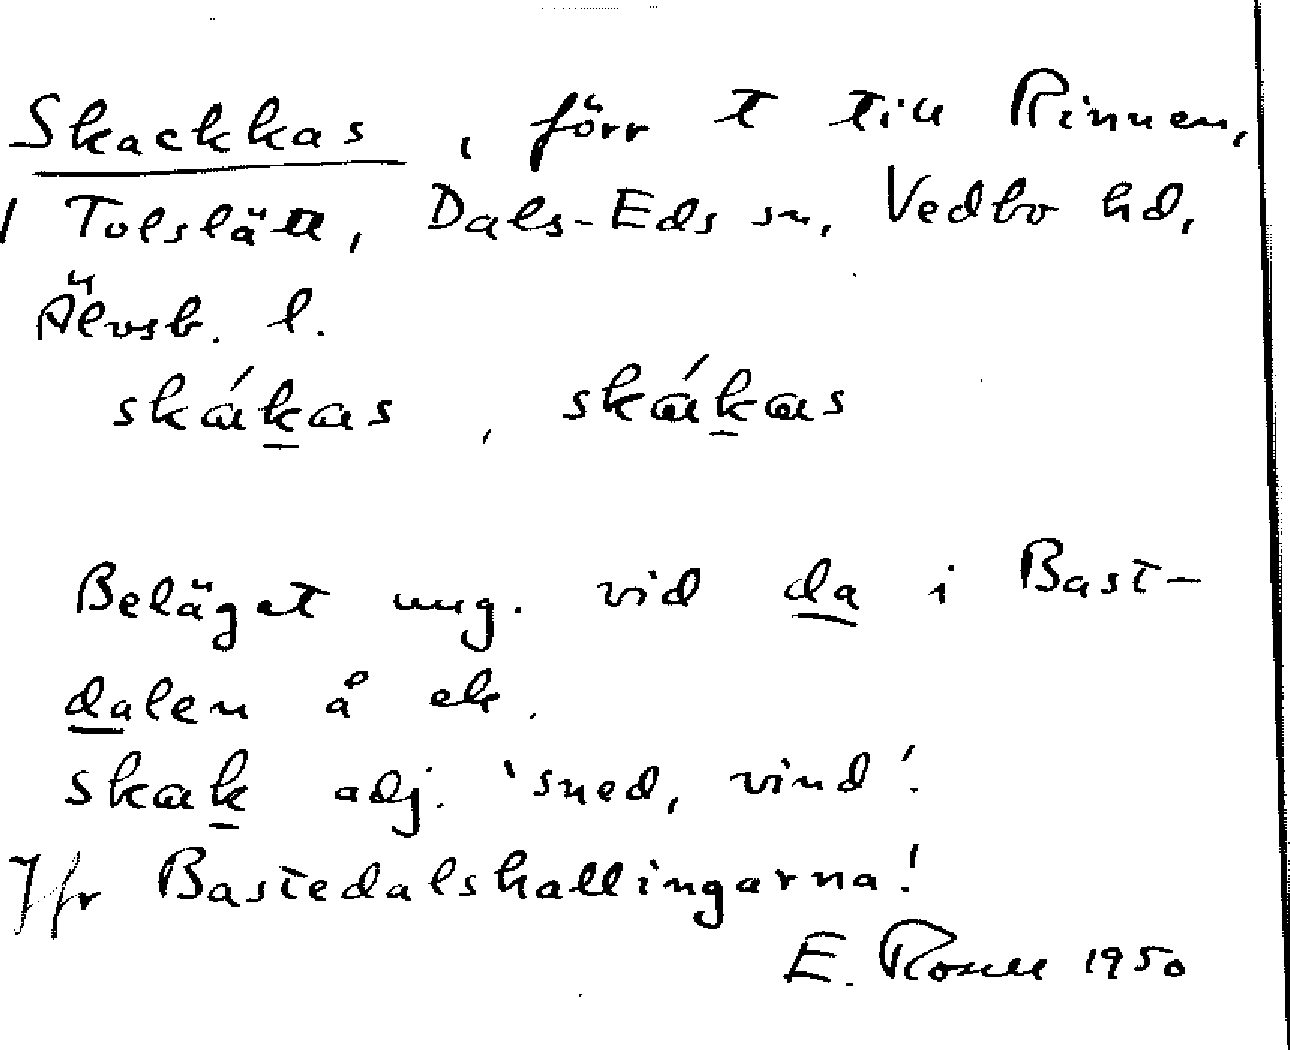 Skackkas, förr t till Rinnen,
1 Tolslätt, Dals-Eds sn, Vedbo hd,
Älvsb. l.
skákas, skákas
Beläget ung. vid da i Bast-
dalen å ek.
skak adj. 'sned, vind'.
Jfr Bastedalshallingarna!
E. Rosell 1950